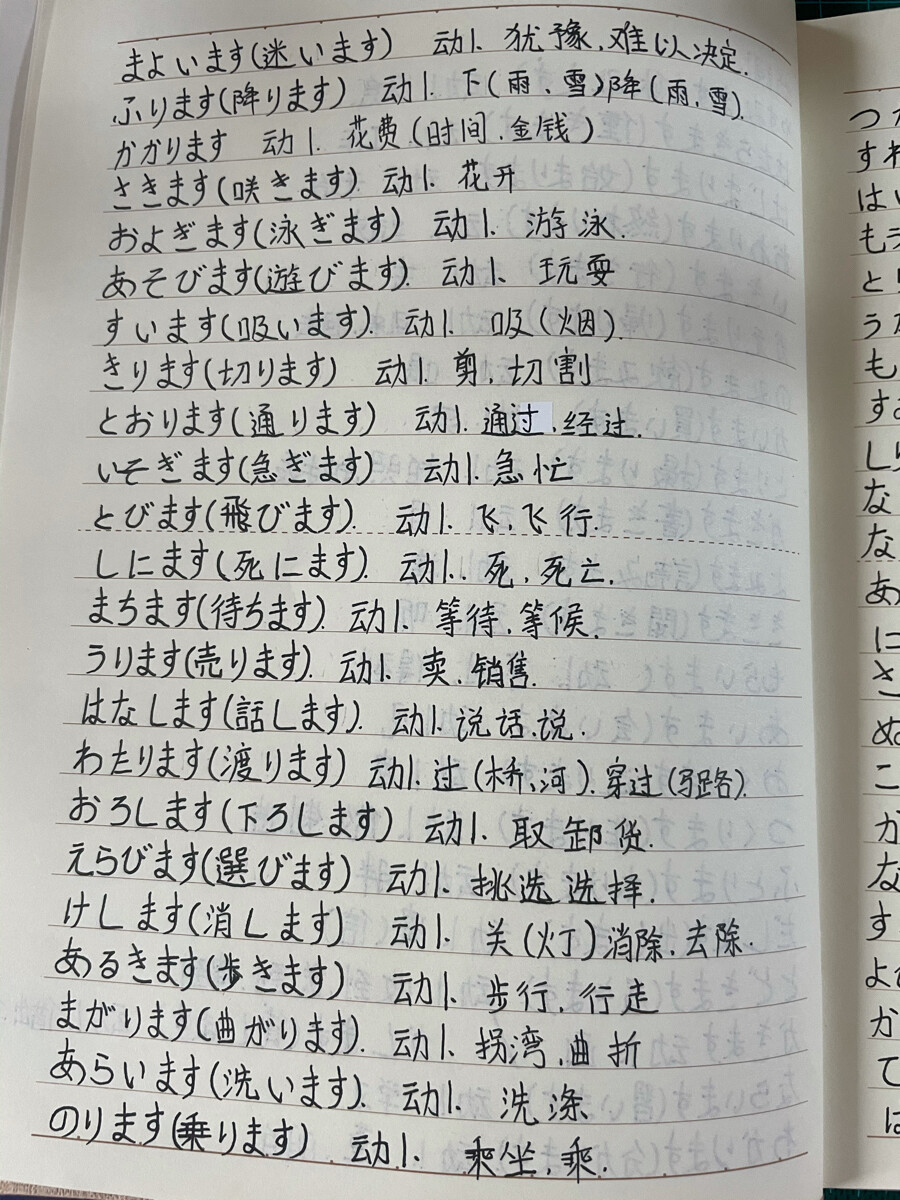 まよいます(迷います) 动1、犹豫、难以决定.
ふります(降ります) 动1. 下(雨、雪)降(雨、雪).
かかります 动1. 花费(时间、金钱)
さきます(咲きます) 动1. 花开
およぎます(泳ぎます) 动1. 游泳.
あそびます(遊びます). 动1、玩耍
すいます(吸います). 动1. 吸(烟).
きります(切ります) 动1. 剪、切割
とおります(通ります) 动1. 通过、经过.
いそぎます(急ぎます) 动1. 急忙
とびます(飛びます). 动1. 飞、飞行.
しにます(死にます). 动1.、死、死亡.
まちます(待ちます). 动1、等待、等候.
うります(売ります). 动1、卖、销售.
はなします(話します). 动1、说话、说.
わたります(渡ります) 动1. 过(桥、河). 穿过(马路).
おろします(下ろします) 动1. 取卸货.
えらびます(選びます) 动1、挑选选择.
けします(消します) 动1. 关(灯)消除、去除.
あるきます(歩きます) 动1. 步行、行走
まがります(曲がります). 动1、拐湾、曲折
あらいます(洗います). 动1、洗涤
のります(乗ります) 动1. 乘坐、乘.
つか
すれ
はい
もう
と
うた
も
す
し
な
な
あ
に
さ
ぬ
こ
か
な
す
よ
か
て
は